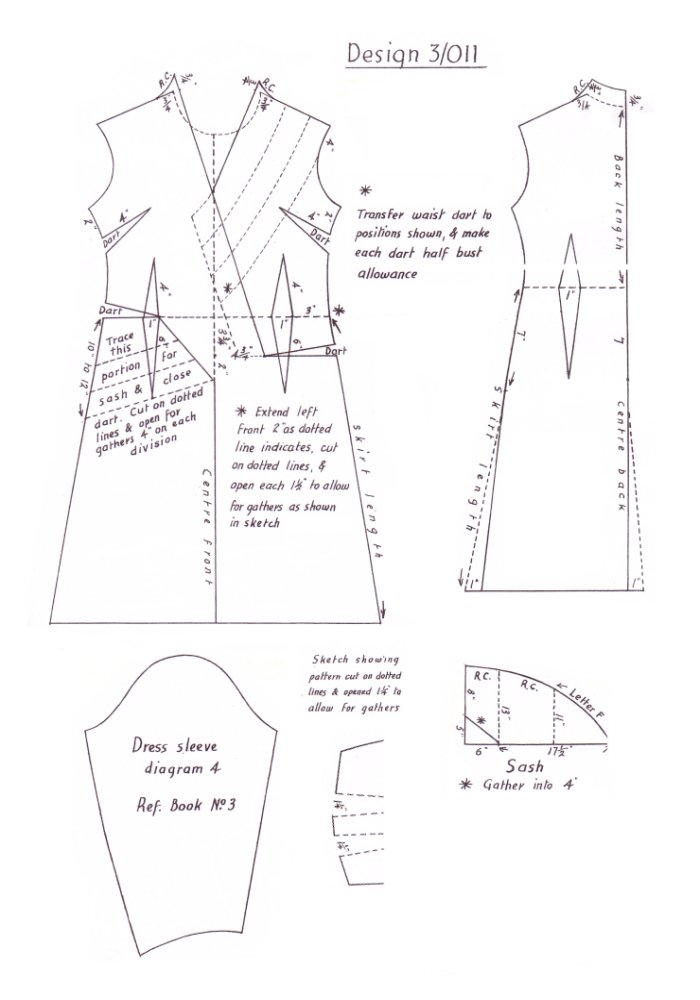 Design 3/011
R.C.
3/4"
3/4"
R.C.
3/4"
4"
2"
4"
Dart
4"
2"
Dart
*
Transfer waist dart to
positions shown, & make
each dart half bust
allowance
4"
4"
*
Dart
1"
1"
3"
*
6"
6"
3 3/4"
4 3/4"
2"
Dart
10" to 12"
Trace
this
portion for
sash & close
dart. Cut on dotted
lines & open for
gathers 4" on each
division
* Extend left
Front 2" as dotted
line indicates, cut
on dotted lines, &
open each 1 1/4" to allow
for gathers as shown
in sketch
Centre Front
Skirt length
R.C.
3/4
3/4"
Back length
1"
7"
7
Skirt length
Centre back
1"
1"
Dress sleeve
diagram 4
Ref: Book No. 3
Sketch showing
pattern cut on dotted
lines & opened 1 1/4" to
allow for gathers
1 1/4"
1 1/4"
R.C.
R.C.
Letter F
8"
13"
11"
5"
*
6"
17 1/2"
Sash
* Gather into 4"